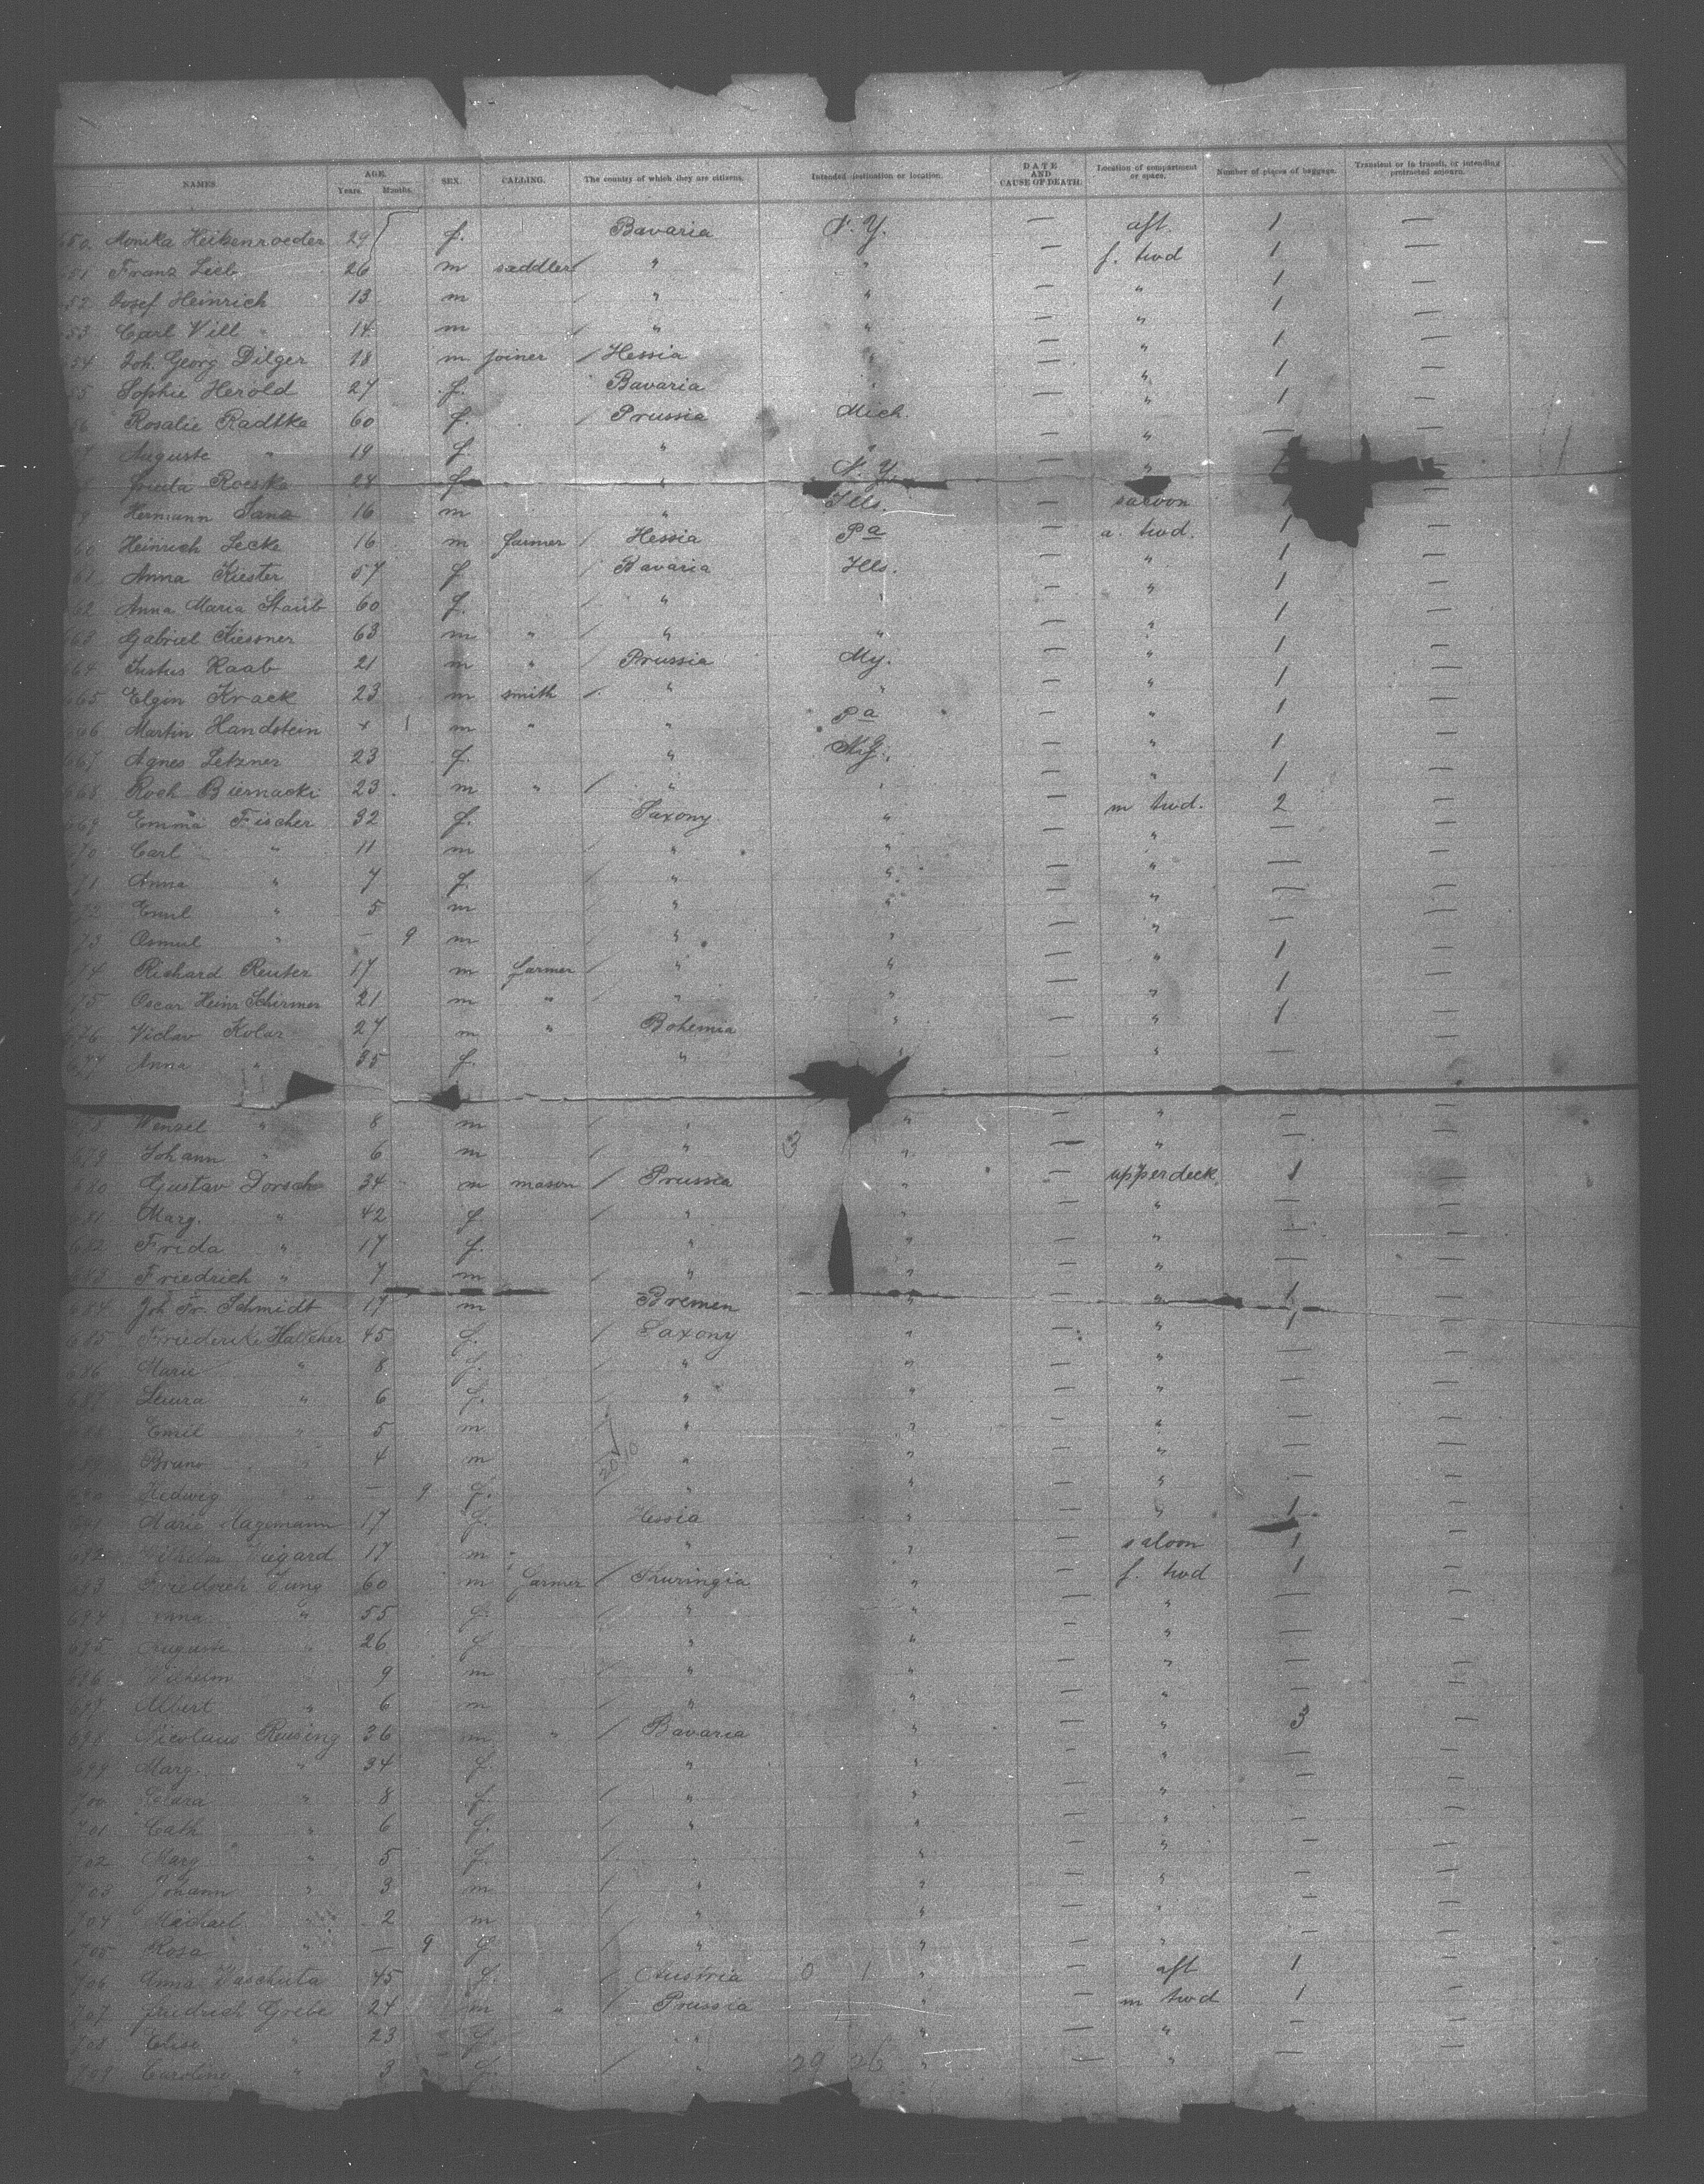 NAMES. AGE. Years. Months. SEX. CALLING. The country of which they are citizens. Intended destination or location. DATE AND CAUSE OF DEATH. Location of compartment or space. Number of pieces of baggage. Transient or in transit, or intending protracted sojourn.
650 Monika Heikenroeder 29 f. Bavaria N. Y. — aft. 1 —
51 Franz Lieb 26 m saddler / " " — f. twd 1 —
52 Josef Heinrich 13 m / " " — " 1 —
53 Carl Will 14 m / " " — " 1 —
54 Joh. Georg Dilger 18 m joiner / Hessia " — " 1 —
55 Sophie Herold 27 f. Bavaria " — " 1 —
56 Rosalie Radtke 60 f. / Prussia Mich. — " 1 —
7 Auguste " 19 f. " " — " —
Frieda Roeske 24 f. " N. Y. — "
9 Hermann 16 m " Ills. — saloon —
60 Heinrich Lecke 16 m farmer / Hessia Pa — a. twd. 1 —
61 Anna Kiester 57 f / Bavaria Ills. — " 1 —
62 Anna Maria Staub 60 f. / " " — " 1 —
663 Gabriel Kiessner 63 m " / " " — " 1 —
664 Justus Raab 21 m " / Prussia My. — " 1 —
665 Elgin Krack 23 m smith / " " — " 1 —
666 Martin Handstein + 1 m " " Pa — " 1 —
667 Agnes Letzner 23 f. " N.Y. — " 1 —
668 Roch Biernacki 23 m " / " " — " 1 —
669 Emma Fischer 32 f. Saxony " — m twd. 2 —
70 Carl " 11 m / " " — " — —
71 Anna " 7 f. / " " — " — —
72 Emil " 5 m / " " — " — —
73 " — 9 m / " " — " — —
74 Richard Reuter 17 m farmer / " " — " 1 —
675 Oscar Heinr Schirmer 21 m " / " " — " 1 —
676 Viclav Kolar 27 m " Bohemia " — " 1 —
677 Anna " 35 f. " " — " — —
678 Wenzel " 8 m / " " — " — —
679 Johann " 6 m / " 3 " — " — —
680 Gustav Dorsch 34 m mason / Prussia " — upperdeck 1 —
681 Marg. " 42 f. / " " — " — —
682 Frida " 17 f. " " — " — —
683 Friedrich " 7 m / " " — " — —
684 Joh Fr. Schmidt 17 m Bremen " — " 1 —
685 Friederike 45 f. / Saxony " — " 1 —
686 Marie " 8 f. / " " — " — —
687 Laura " 6 f. / " " — " — —
688 Emil " 5 m / " " — " — —
689 Bruno " 4 m / " " — " — —
690 Hedwig " — 9 f. / " " — " — —
691 Marie Hagemann 17 f. Hessia " — " 1 —
692 Wilhelm Wiegard 17 m " " — saloon 1 —
693 Friedrich Jung 60 m farmer / Thuringia " — f. twd 1 —
694 Anna " 55 f. / " " — " — —
695 Auguste " 26 f / " " — " — —
696 Wilhelm " 9 m / " " — " — —
697 Albert " 6 m / " " — " — —
698 Nicolaus Reusing 36 m " / Bavaria " — " 3 —
699 Marg. " 34 f. " " — " — —
700 Clara " 8 f. / " " — " — —
701 Cath " 6 f. / " " — " — —
702 Marg " 5 f. / " " — " — —
703 Johann " 3 m / " " — " — —
704 Michael " 2 m / " " — " — —
705 Rosa " — 9 f / " " — " — —
706 Anna 45 f. / Austria 0 1 " — aft 1 —
707 Friedrich Grebe 24 m " / Prussia " — m twd 1 —
708 Elise " 23 f. " " — " — —
709 Caroline " 3 f. / " 29 26 " — " — —